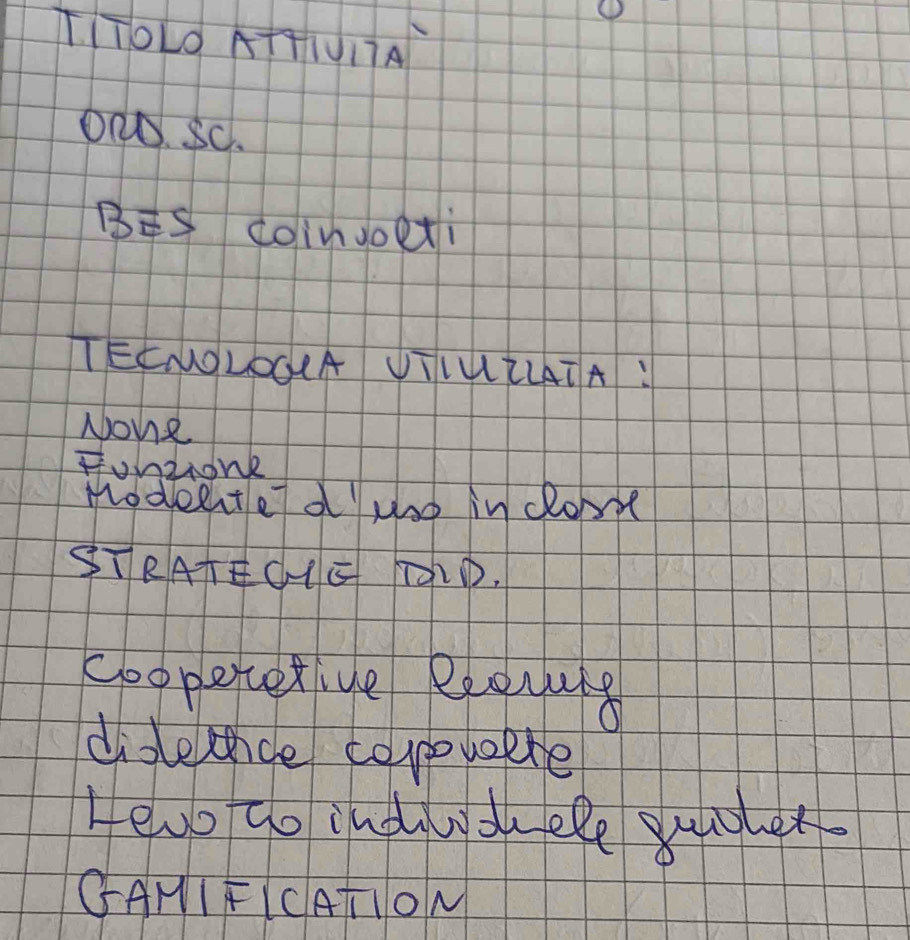 TITOLO ATTIVITÀ
ORD. SC.
BES coinvolti
TECNOLOGIA UTILIZZATA :
Nome
Funzione
Modalità d'uso in classe
STRATEGIE DID.
Cooperative learning
didattica capovolta
Lavoro individuale guidato
GAMIFICATION